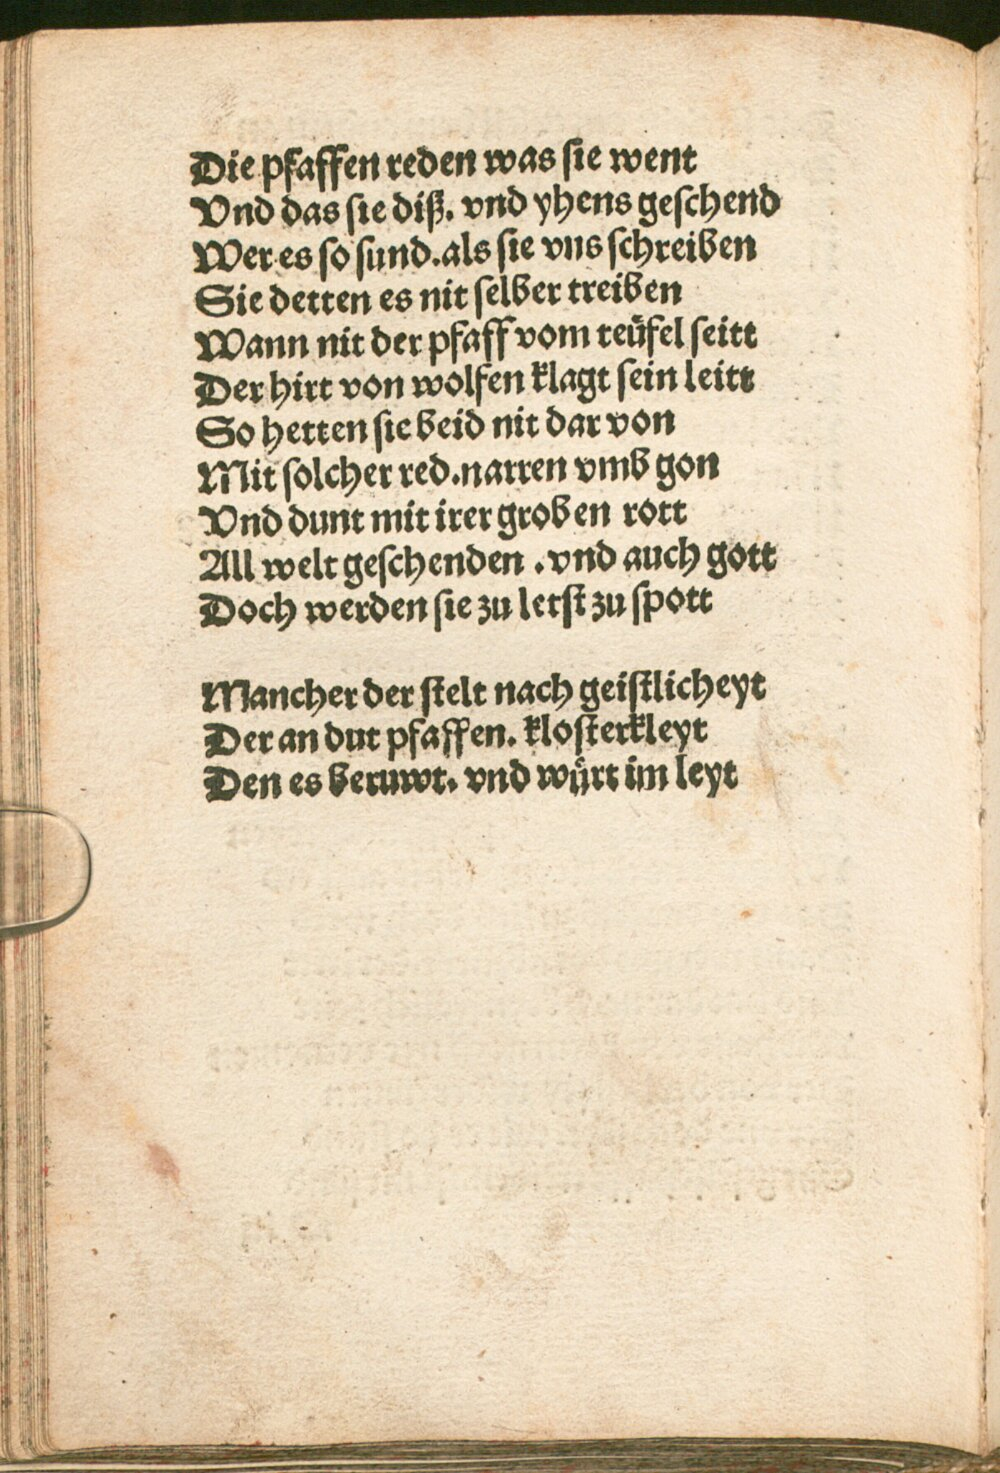 Die pfaffen reden was sie went
Vnd das sie diß. vnd yhens geschend
Wer es so sund. als sie vns schreiben
Sie detten es nit selber treiben
Wann nit der pfaff vom teüfel seitt
Der hirt von wolfen klagt sein leitt
So hetten sie beid nit dar von
Mit solcher red. narren vmb gon
Vnd dunt mit irer groben rott
All welt geschenden . vnd auch gott
Doch werden sie zu letst zu spott

Mancher der stelt nach geistlicheyt
Der an dut pfaffen. klosterkleyt
Den es beruwt. vnd würt im leyt